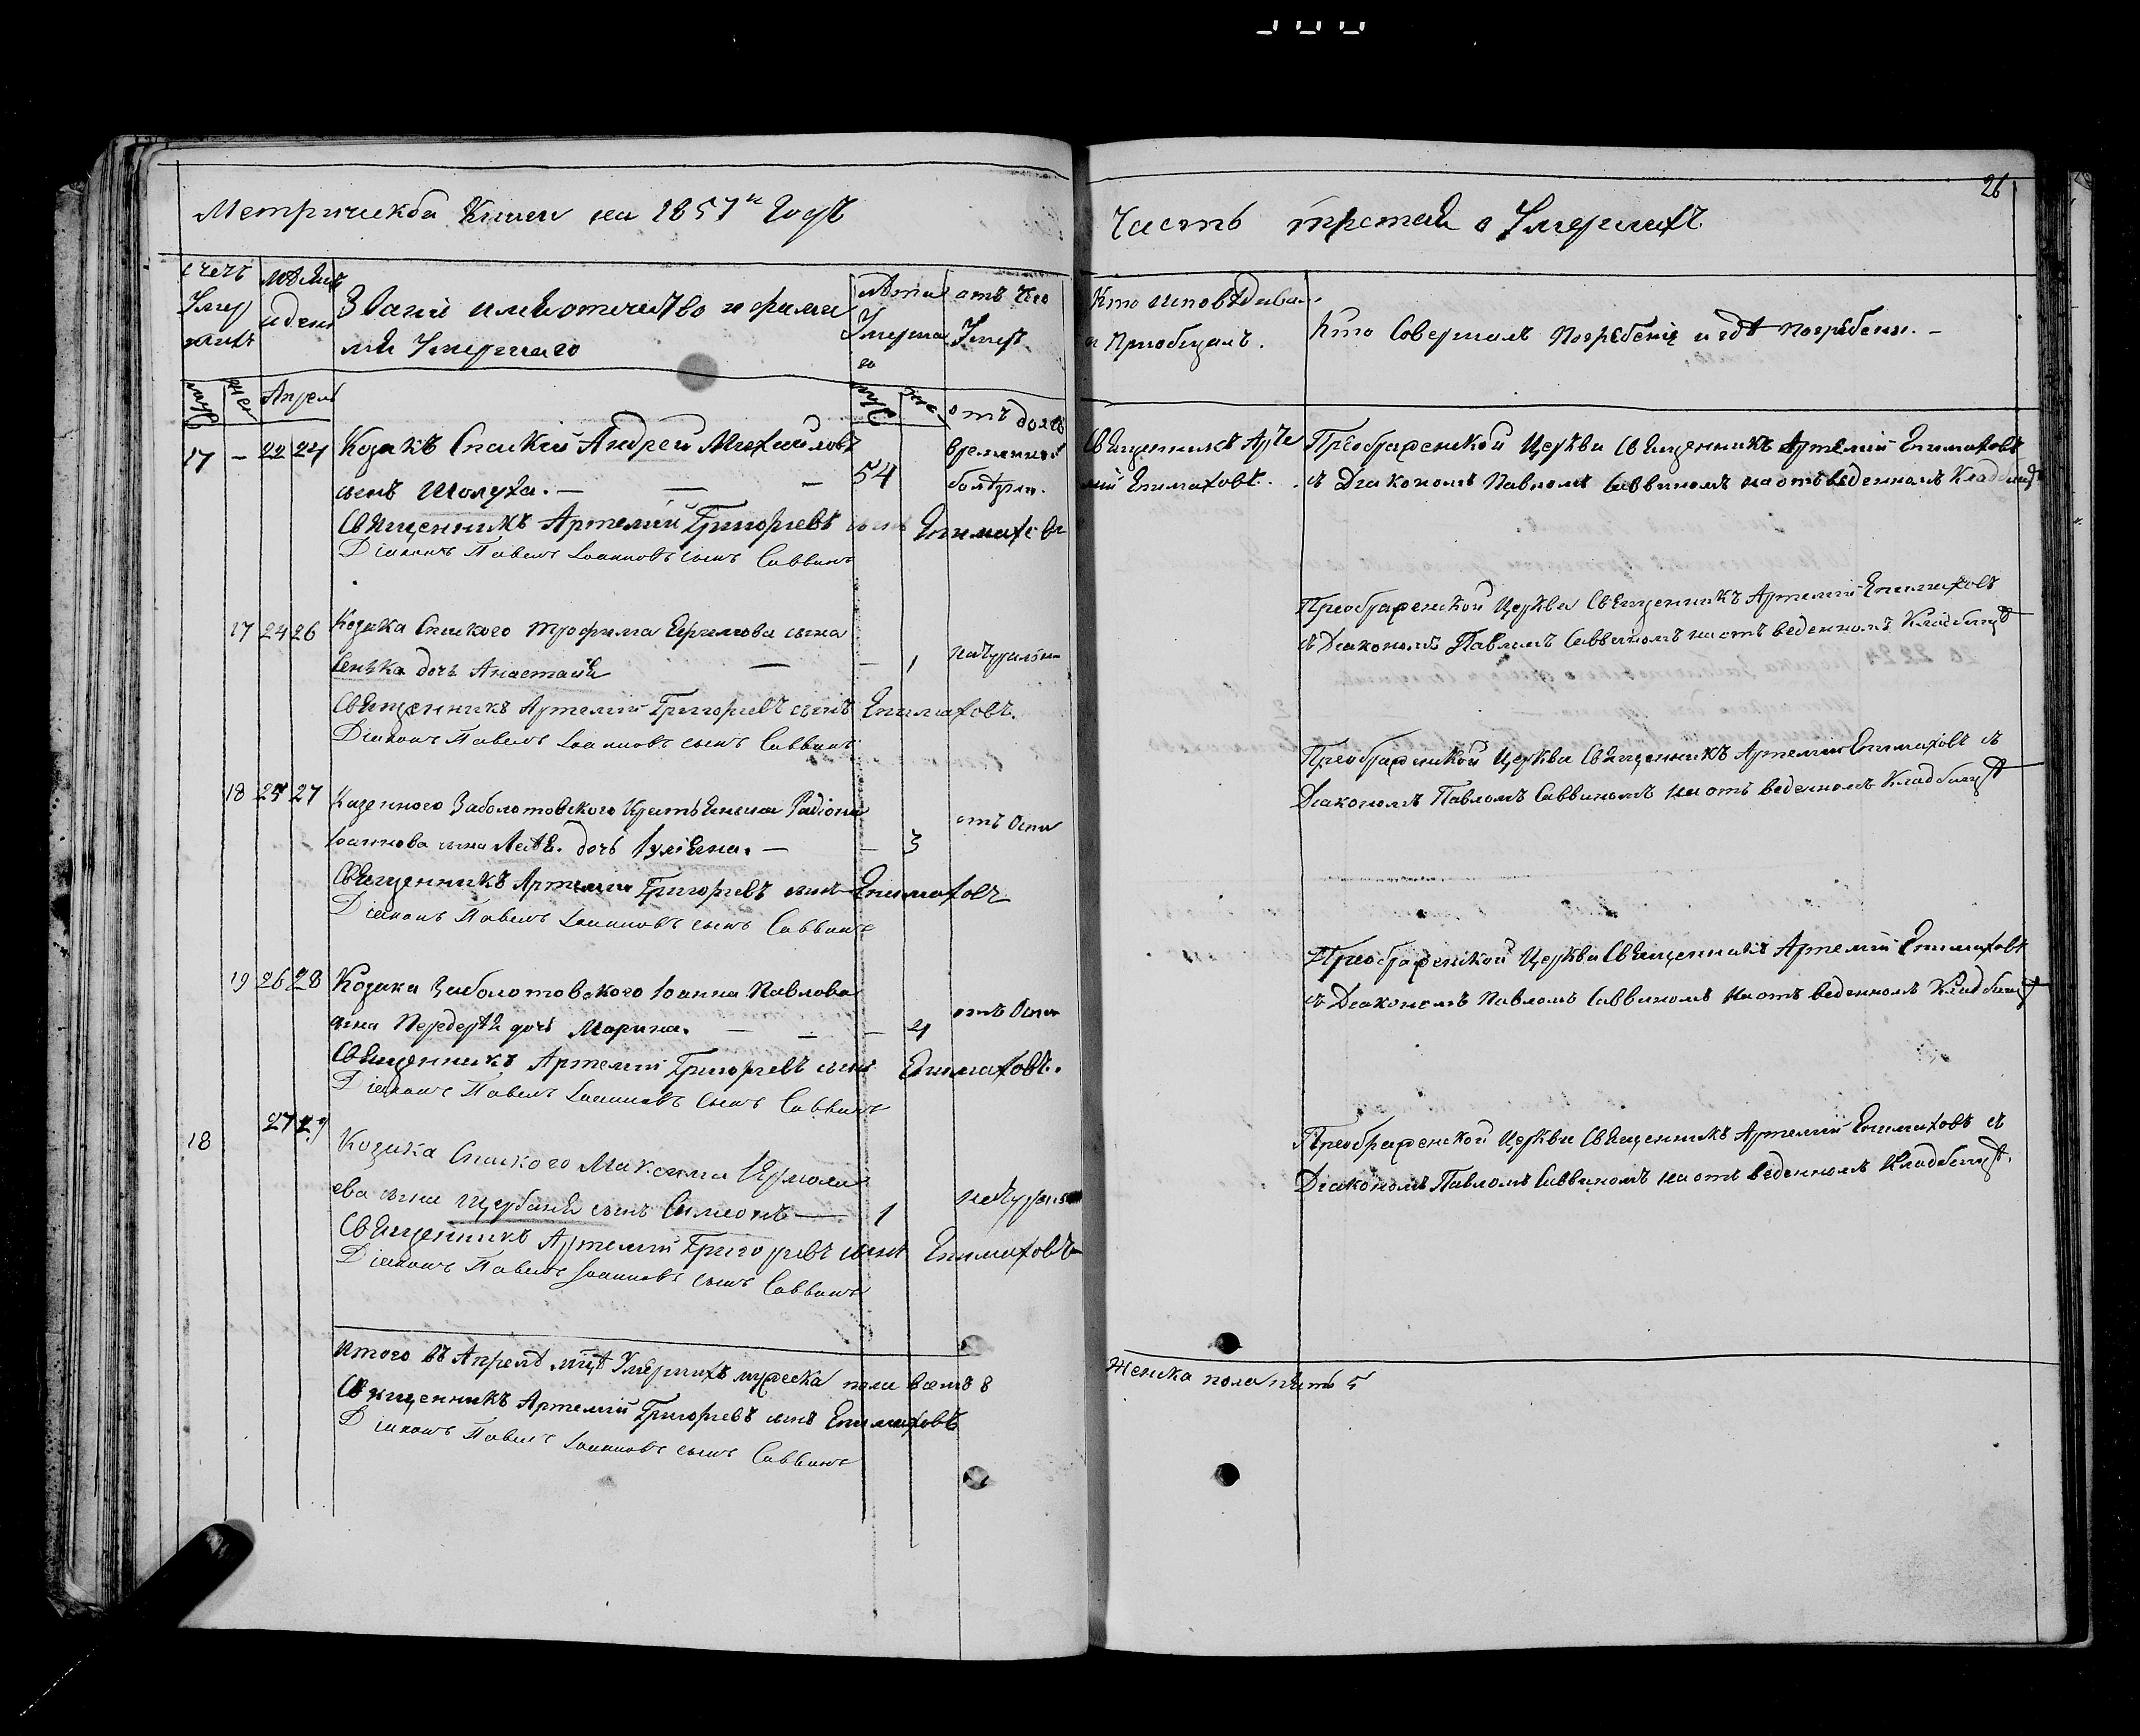 Метрическая Книги на 1857й Годъ
счетъ Умершихъ
мѣсяцъ и день
Званіе имя отечество и фамилія Умершаго
лѣта Умершаго
отъ чего Умеръ
муж жен Апрель муж жен
17 — 22 24 Козакъ Спаскій Андрей Михайловъ
сынъ Шолуха. — — — 54
отъ долговременной болѣзни.
Священникъ Артемій Григорьевъ сынъ Епимаховъ
Діаконъ Павелъ Іоанновъ сынъ Саввинъ
17 24 26 Козака Спаского Трофима Ефимова сына
Сенька дочь Анастасія — — 1 натурально
Священникъ Артемій Григорьевъ сынъ Епимаховъ.
Діаконъ Павелъ Іоанновъ сынъ Саввинъ
18 25 27 Казенного Заболотовского Крестьянина Радіона
Іоаннова сына дочь Іуліяна. — — 3 отъ Оспы
Священникъ Артемій Григорьевъ сынъ Епимаховъ
Діаконъ Павелъ Іоанновъ сынъ Саввинъ
19 26 28 Козака Заболотовского Іоанна Павлова
сына Передерѣя дочь Марина. — — — 4 отъ Оспы
Священникъ Артемій Григорьевъ сынъ Епимаховъ.
Діаконъ Павелъ Іоанновъ сынъ Саввинъ
18 27 29 Козака Спаского Максима Ермолаева
сына Щербаня сынъ Симеонъ — 1 натурально
Священникъ Артемій Григорьевъ сынъ Епимаховъ
Діаконъ Павелъ Іоанновъ сынъ Саввинъ
Итого въ Апрелѣ мцѣ Умершихъ мужеска пола восемь 8
Священникъ Артемій Григорьевъ сынъ Епимаховъ
Діаконъ Павелъ Іоанновъ сынъ Саввинъ
26
Часть третая о Умершихъ
Кто исповѣдивалъ и Приобщалъ.
Кто Совершалъ Погребеніе и гдѣ Погребенъ. —
Священникъ Артемій Епимаховъ.
Преображенской Церкви Священникъ Артемій Епимаховъ
съ Диакономъ Павломъ Саввиномъ на отъ веденномъ Кладбищѣ
Преображенской Церкви Священникъ Артемій Епимаховъ
съ Диакономъ Павломъ Саввиномъ на отъ веденномъ Кладбищѣ
Преображенской Церкви Священникъ Артемій Епимаховъ съ
Диакономъ Павломъ Саввиномъ на отъ веденномъ Кладбищѣ
Преображенской Церкви Священникъ Артемій Епимаховъ
съ Диакономъ Павломъ Саввиномъ на отъ веденномъ Кладбищѣ
Преображенской Церкви Священникъ Артемій Епимаховъ съ
Диакономъ Павломъ Саввиномъ на отъ веденномъ Кладбищѣ.
Женска пола пять 5